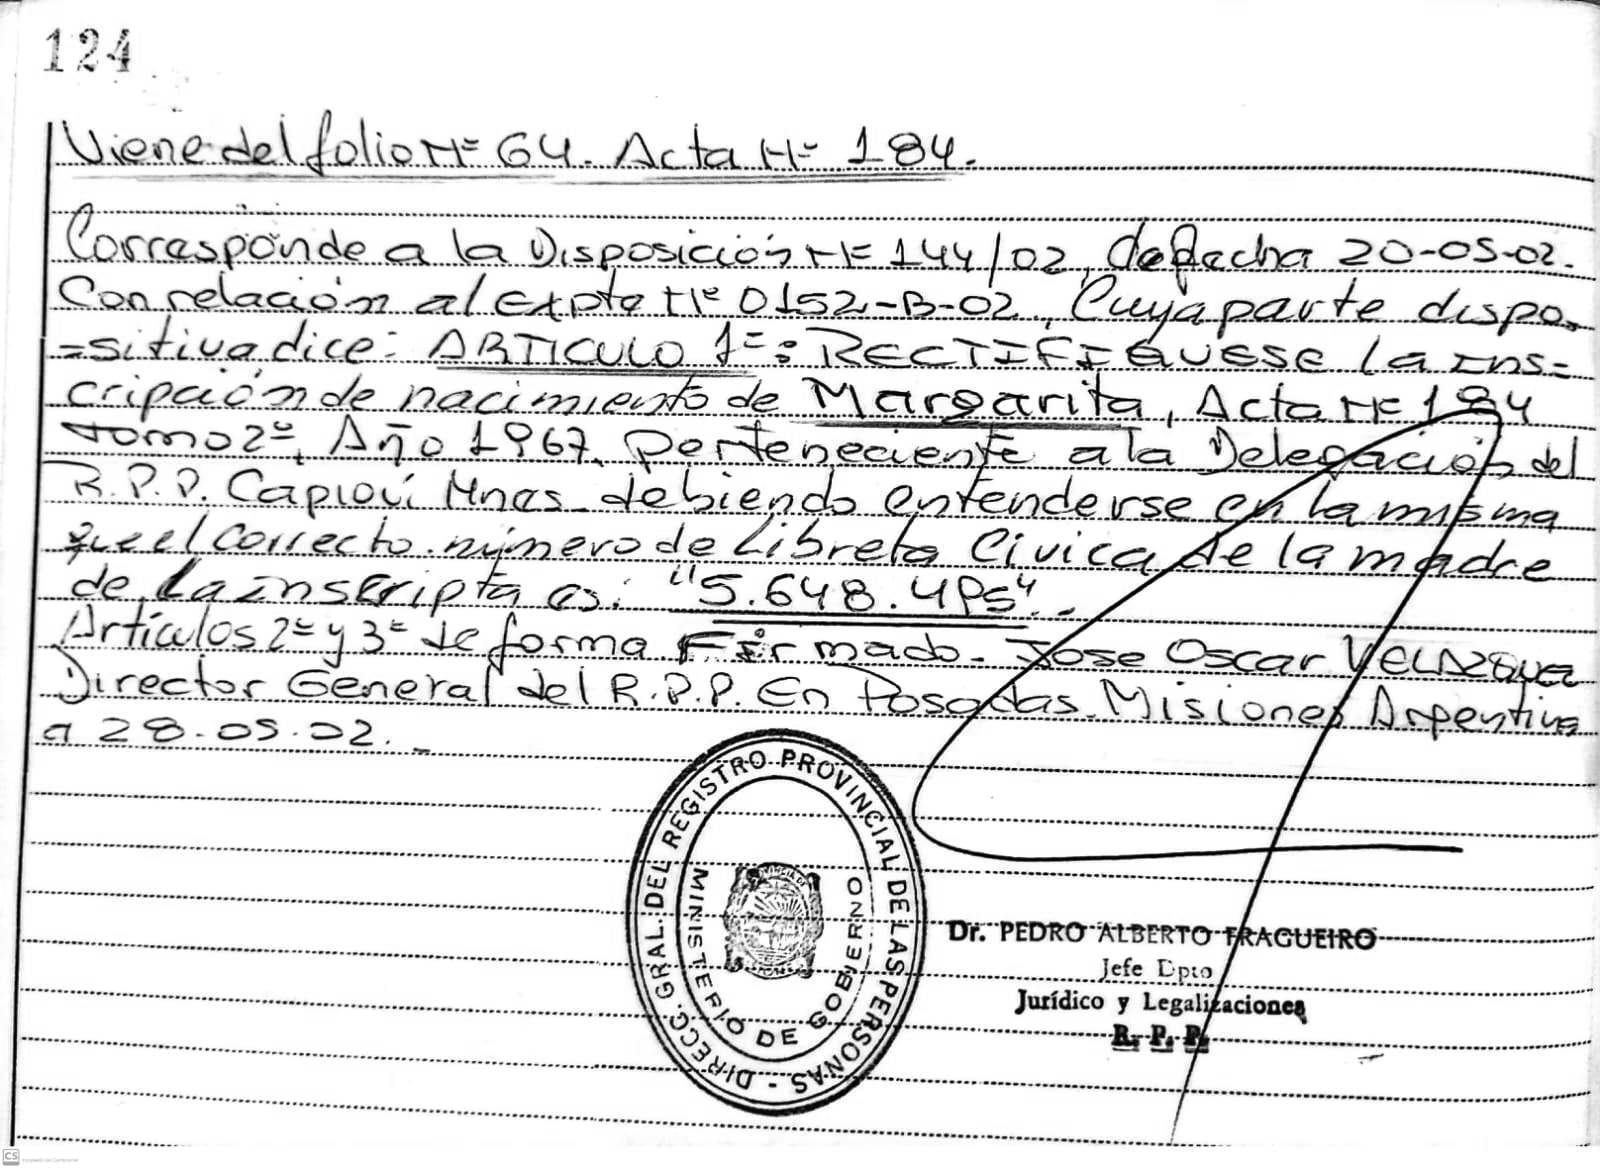 124
Viene del folio Nº 64. Acta Nº 184.
Corresponde a la Disposición Nº 144/02, de fecha 20-05-02.
Con relación al Expte Nº 0152-B-02, Cuya parte dispo-
=sitiva dice: ARTICULO 1º: RECTIFIQUESE la ins=
cripción de nacimiento de Margarita, Acta Nº 184
tomo 2º, Año 1967, perteneciente a la Delegación del
R.P.P. Capioví Mnes. debiendo entenderse en la misma
que el correcto número de Libreta Cívica de la madre
de la inscripta es: "5.648.495".
Artículos 2º y 3º de forma Firmado. Jose Oscar VELAZQUEZ
Director General del R.P.P. En Posadas. Misiones Argentina
a 28-05-02.
DIRECC. GRAL. DEL REGISTRO PROVINCIAL DE LAS PERSONAS -
MINISTERIO DE GOBIERNO
PROVINCIA DE
MISIONES
Dr. PEDRO ALBERTO FRAGUEIRO
Jefe Dpto
Jurídico y Legalizaciones
R. P. P.
CS